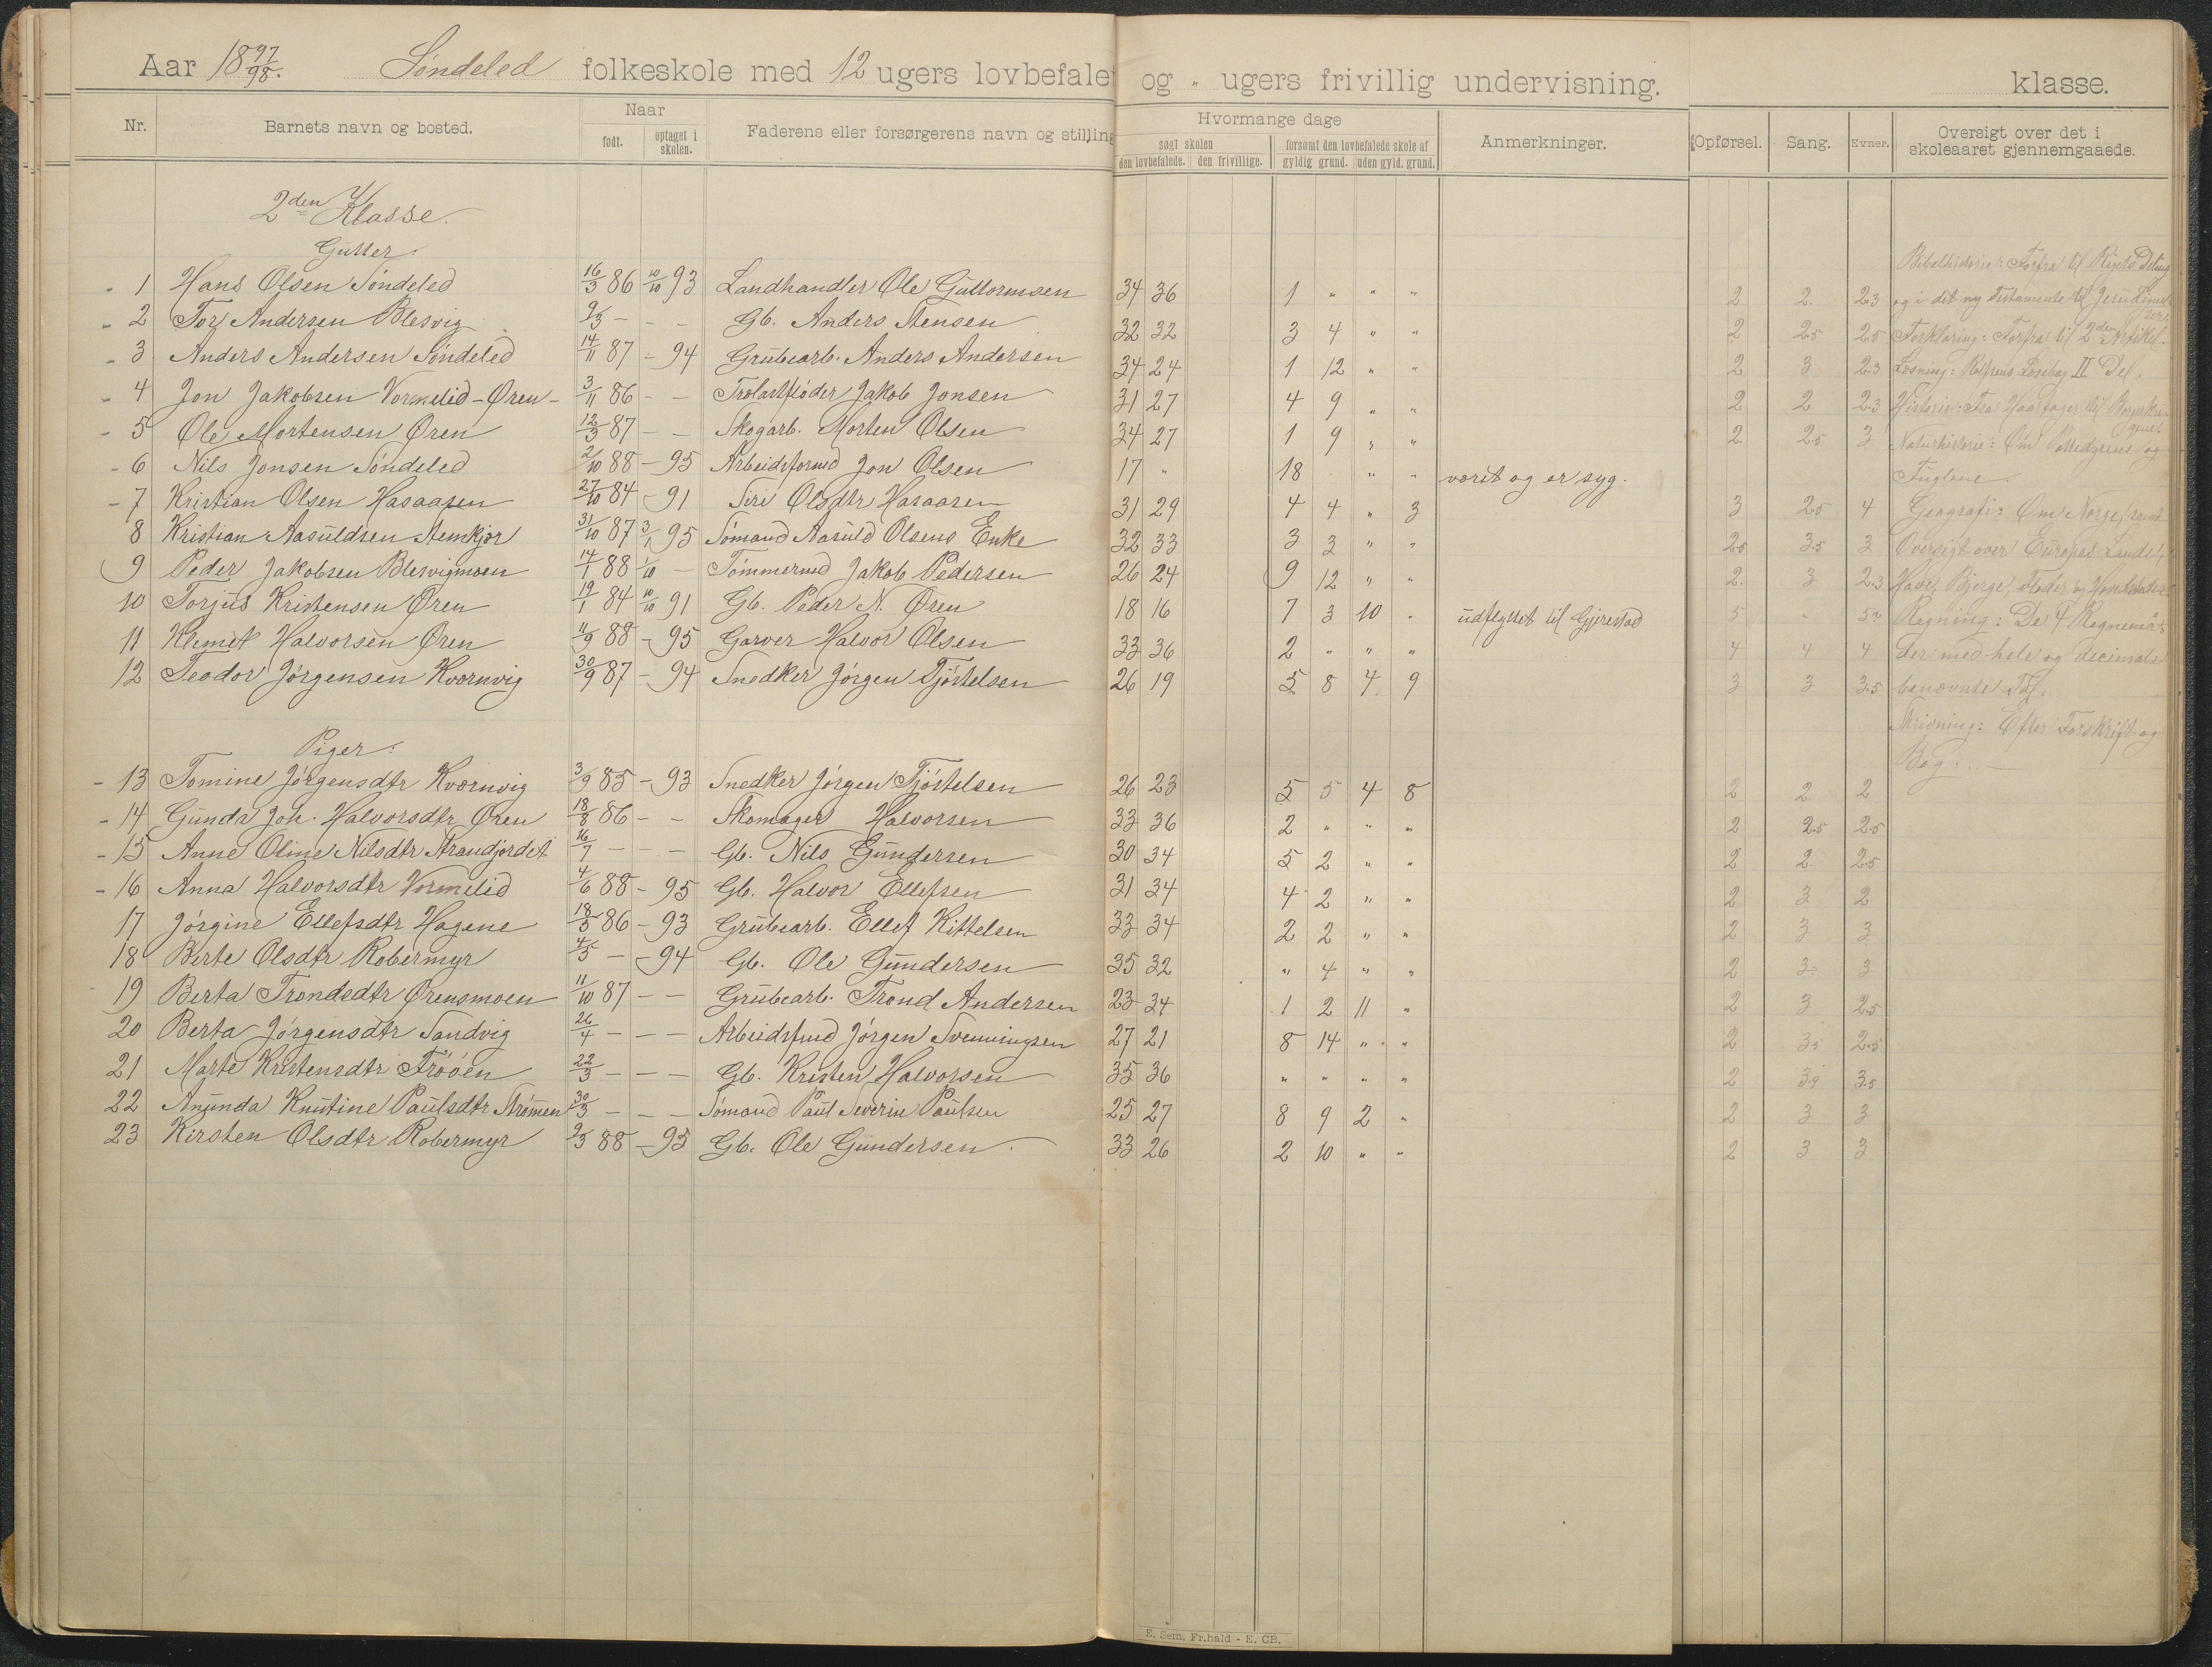 Aar 18 97/98. Søndeled folkeskole med 12 ugers lovbefalet og „ ugers frivillig undervisning. klasse.
Nr. Barnets navn og bosted. Naar født. optaget i skolen. Faderens eller forsørgerens navn og stilling Hvormange dage søgt skolen den lovbefalede. den frivillige. forsømt den lovbefalede skole af gyldig grund. uden gyld. grund. Anmerkninger. Opførsel. Sang. Evner. Oversigt over det i skoleaaret gjennemgaaede.
2den Klasse.
Gutter.
1 Hans Olsen Søndeled 16/3 86 10/10 93 Landhandler Ole Guttormsen 34 36 1 „ „ „ 2 2. 2.3
2 Tor Andersen Blesvig 9/3 – – – Gb. Anders Stensen 32 32 3 4 „ „ 2 2.5 2.5
3 Anders Andersen Søndeled 14/11 87 – 94 Grubearb. Anders Andersen 34 24 1 12 „ „ 2 3 2.3
4 Jon Jakobsen Vormelid-Øren 3/11 86 – – Jakob Jonsen 31 27 4 9 „ „ 2 2 2.3
5 Ole Mortensen Øren 12/3 87 – – Skogarb. Morten Olsen 34 27 1 9 „ „ 2 2.5 3
6 Nils Jonsen Søndeled 2/10 88 – 95 Arbeidsformd Jon Olsen 17 „ 18 „ „ været og er syg.
7 Kristian Olsen Hasaasen 27/10 84 – 91 Siri Olsdtr Hasaasen 31 29 4 4 „ 3 3 2.5 4
8 Kristian Aasuldsen Stemkjær 31/10 87 3/1 95 Sømand Aasuld Olsens Enke 32 33 3 3 „ „ 2.5 3.5 3
9 Peder Jakobsen Blesvigmoen 14/1 88 1/10 – Tømmermd Jakob Pedersen 26 24 9 12 „ „ 2. 3 2.3
10 Torjus Kristensen Øren 19/1 84 10/10 91 Gb. Peder N. Øren 18 16 7 3 10 . udflyttet til Gjerestad 5 . 5
11 Klemet Halvorsen Øren 11/9 88 – 95 Garver Halvor Olsen 33 36 2 „ „ „ 4 4 4
12 Teodor Jørgensen Kvernvig 30/9 87 – 94 Snedker Jørgen Tjøstelsen 26 19 5 8 4 9 3 3 3.5
Piger:
13 Tomine Jørgensdtr Kvernvig 3/9 85 – 93 Snedker Jørgen Tjøstelsen 26 23 5 5 4 8 2 2 2
14 Gunda Joh. Halvorsdtr Øren 18/8 86 – – Skomager Halvorsen 33 36 2 „ „ „ 2 2.5 2.5
15 Anne Oline Nilsdtr Strandjordet 16/7 – – – Gb. Nils Gundersen 30 34 5 2 „ „ 2 2 2.5
16 Anna Halvorsdtr Vormelid 4/6 88 – 95 Gb. Halvor Ellefsen 31 34 4 2 „ „ 2 3 2
17 Jørgine Ellefsdtr Hagene 18/5 86 – 93 Grubearb. Ellef Kittelsen 33 34 2 2 „ „ 2 3 3
18 Berte Olsdtr Røbermyr 4/5 – – 94 Gb. Ole Gundersen 35 32 „ 4 „ „ 2 3 3
19 Berta Trondsdtr Ørensmoen 11/10 87 – – Grubearb. Trond Andersen 23 34 1 2 11 „ 2 3 2.5
20 Berta Jørgensdtr Sandvig 26/4 – – – Arbeidsfmd Jørgen Svenningsen 27 21 8 14 „ „ 2 3.5 2.5
21 Marte Kristensdtr Frøøen 22/3 – – – Gb. Kristen Halvorsen 35 36 „ „ „ „ 2 3.5
22 Anunda Knutine Paulsdtr Strømmen 30/3 – – – Sømand Paul Severin Paulsen 25 27 8 9 2 „ 2 3 3
23 Kirsten Olsdtr Røbermyr 9/3 88 – 95 Gb. Ole Gundersen. 33 26 2 10 „ „ 2 3 3
Bibelhistorie: Forfra til Rigets Deling
og i det ny Testamente til Jesu
Forklaring: Forfra til 2den Artikel.
Læsning: Rolfsens Læsebog II Del.
Historie: Fra Haarfager til
Naturhistorie: Om Pattedyrene og
Fuglene.
Geografi: Om Norge, samt
Oversigt over Europas Lande,
Have, Bjerge, Floder og Hovedstæder
Regning: De 4 Regnemaa-
der med hele og decimale
benævnte Tal.
Skrivning: Efter Forskrift og
Bog.
E. Sem, Fr.hald - E. CB.